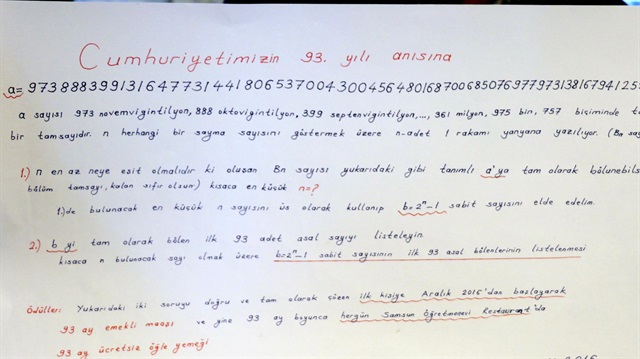 Cumhuriyetimizin 93. yılı anısına
a=
a sayısı 973 novemvigintilyon, 888 oktovigintilyon, 399 septenvigintilyon,..., 361 milyon, 975 bin, 757 biçiminde
bir tamsayıdır. n herhangi bir sayma sayısını göstermek üzere n-adet 1 rakamı yanyana yazılıyor. (Bn
1.) n en az neye eşit olmalıdır ki oluşan Bn sayısı yukarıdaki gibi tanımlı a'ya tam olarak bölünebils
bölüm tamsayı, kalan sıfır olsun) kısaca en küçük n=?
1.)de bulunacak en küçük n sayısını üs olarak kullanıp b=2ⁿ-1 sabit sayısını elde edelim.
2.) b yi tam olarak bölen ilk 93 adet asal sayıyı listeleyin
kısaca n bulunacak sayı olmak üzere b=2ⁿ-1 sabit sayısının ilk 93 asal bölenlerinin listelenmesi
Ödüller: Yukarıdaki iki soruyu doğru ve tam olarak çözen ilk kişiye Aralık 2016'dan başlayarak
93 ay emekli maaşı ve yine 93 ay boyunca hergün Samsun Öğretmenevi Restaurant'da
93 ay ücretsiz öğle yemeği